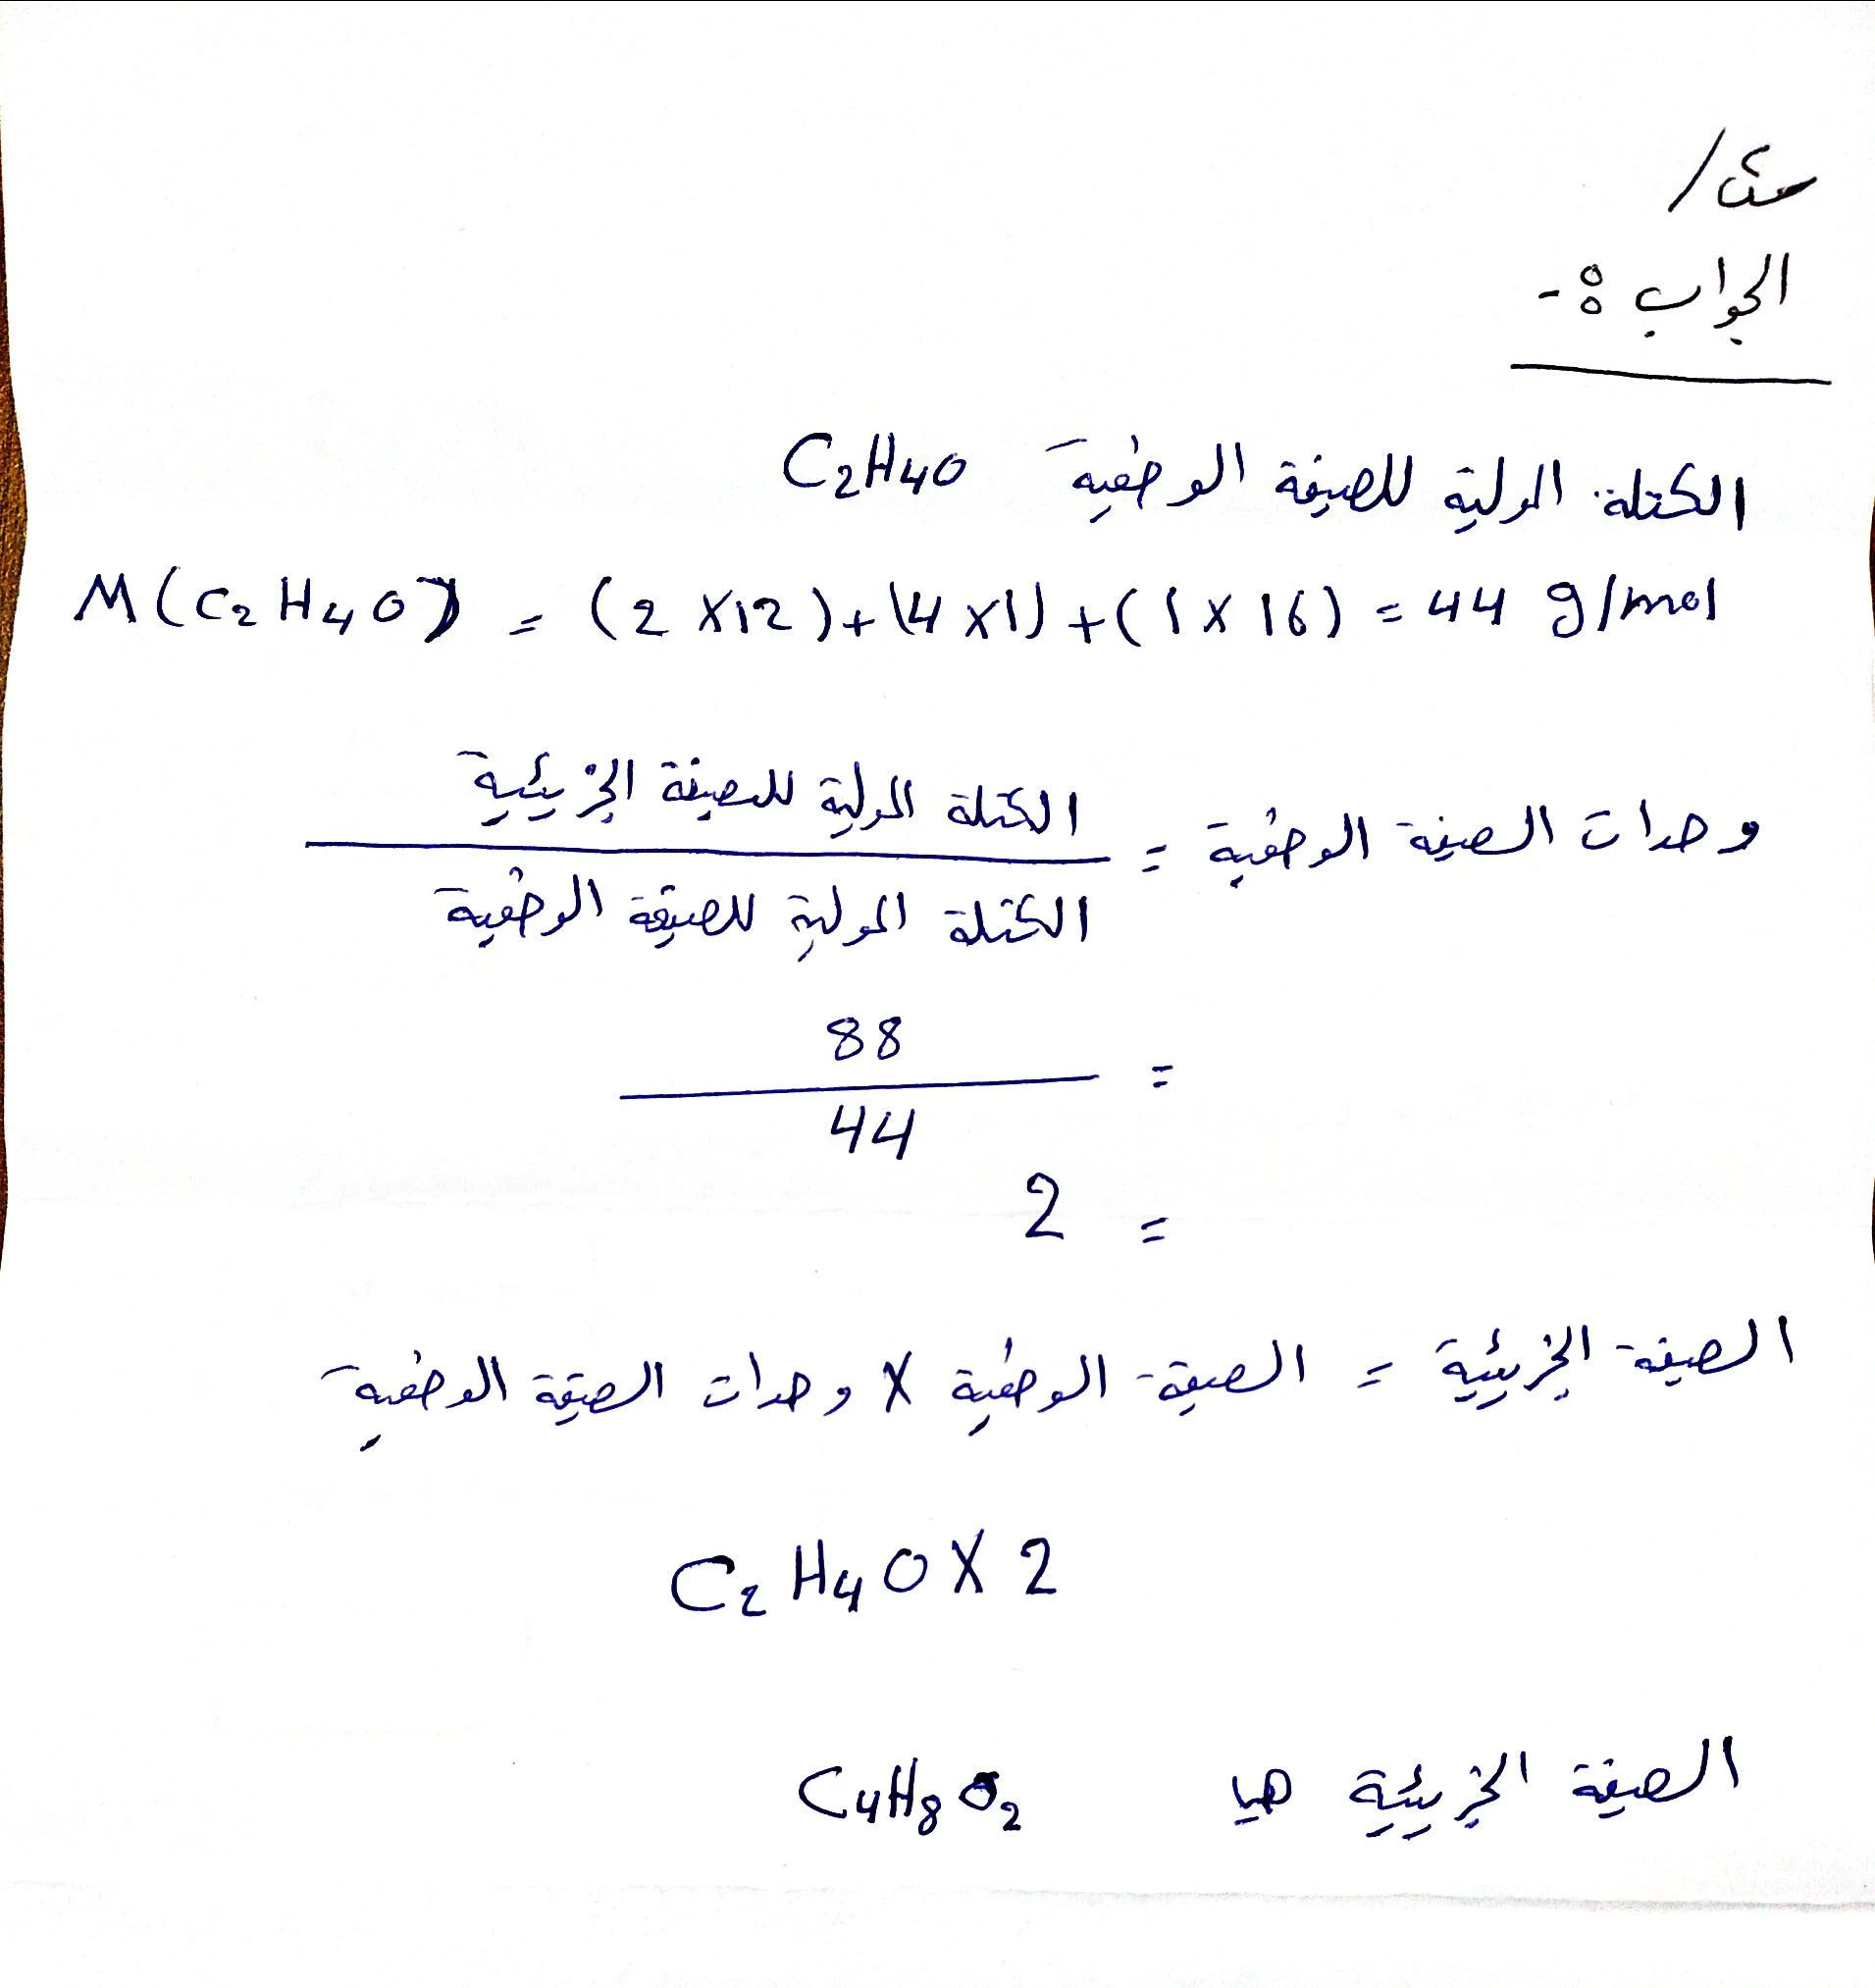 مث /
الجواب :-
الكتلة المولية للصيغة الوضعية C2H4O
M(C2H4O) = (2 X12)+(4 X1)+(1 X 16) = 44 g/mol
وحدات الصيغة الوضعية = الكتلة المولية للصيغة الجزيئية
الكتلة المولية للصيغة الوضعية
= 88
44
= 2
الصيغة الجزيئية = الصيغة الوضعية X وحدات الصيغة الوضعية
C2 H4 O X 2
الصيغة الجزيئية هيا C4H8O2